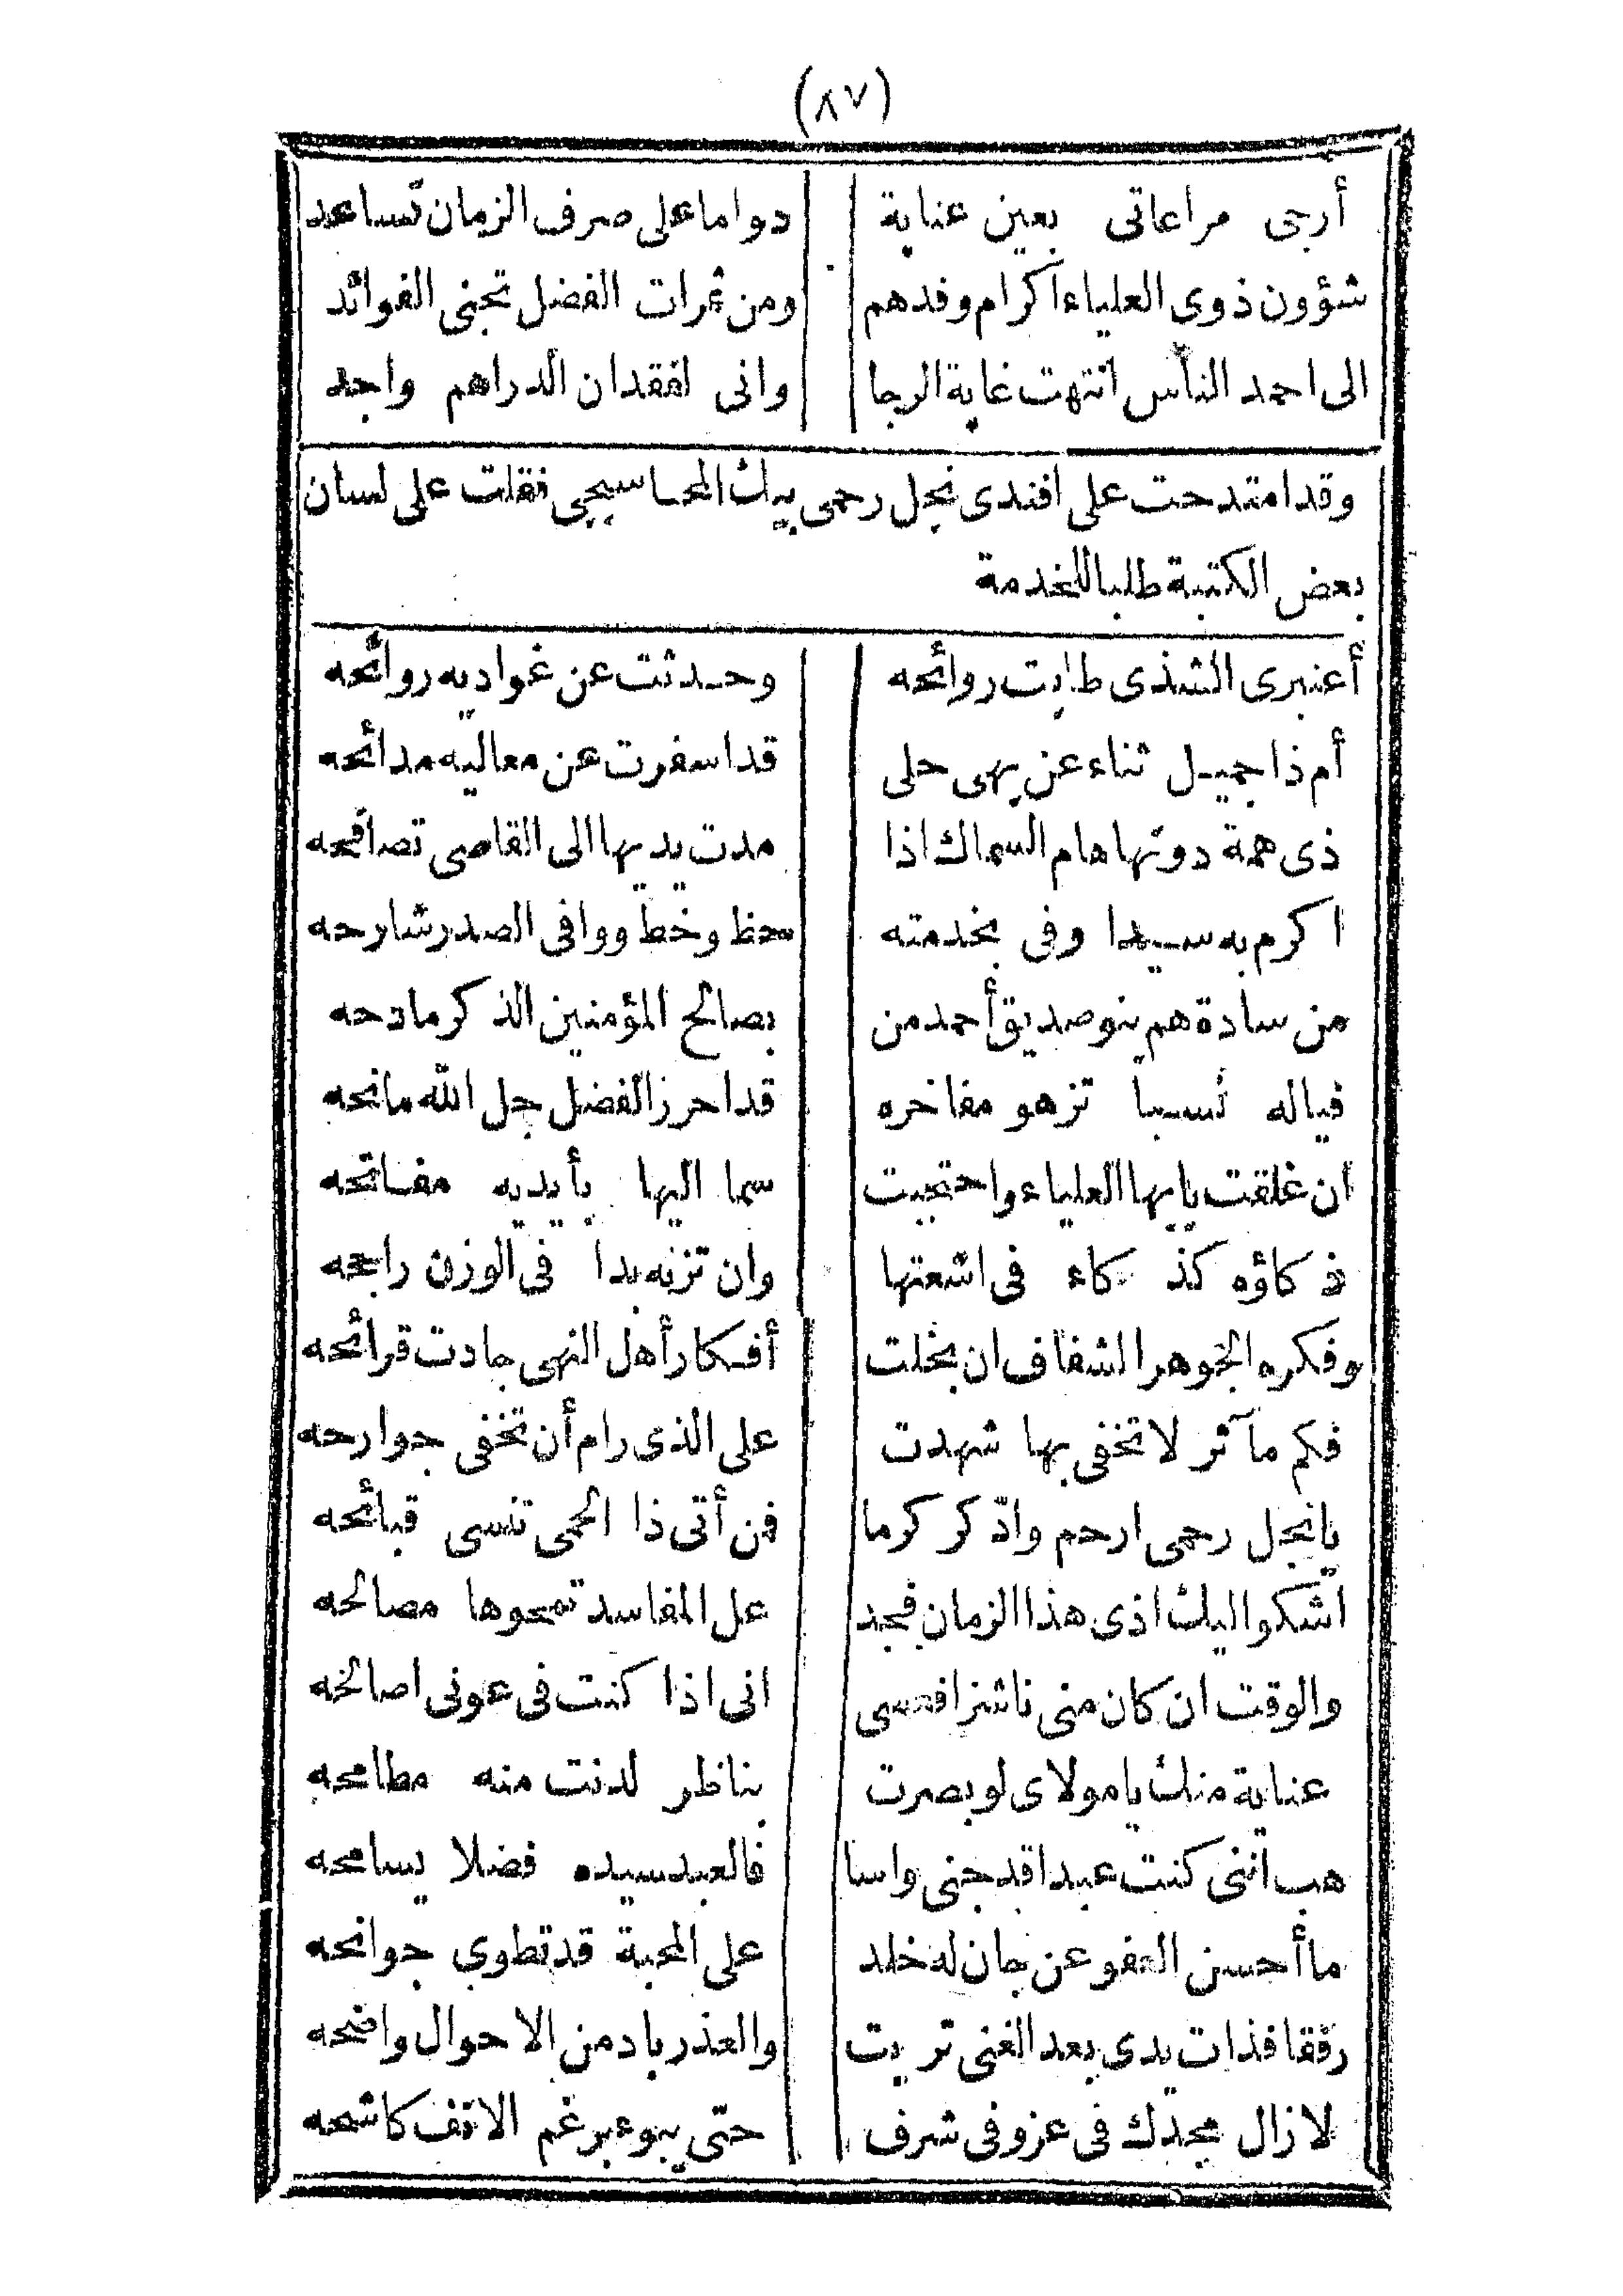 (٨٧)
أرجى مراعاتى بعين عناية دواما على صرف الزمان تساعد
شؤون ذوى العلياء اكرام وفدهم ومن ثمرات الفضل تجنى الفوائد
الى احمد الناس انتهت غاية الرجا وانى لفقدان الدراهم واجد
وقد امتدحت على افندى نجل رحمى بيك المحاسبجى فقلت على لسان
بعض الكتبة طلبا للخدمة
أعنبرى الشذى طابت روائحه وحدثت عن غواديه روائحه
أم ذا جميل ثناء عن بهى حلى قد اسفرت عن معاليه مدائحه
ذى همة دونها هام السماك اذا مدت يديها الى القاصى تصافحه
اكرم به سيدا وفى بخدمته حظ وخط ووافى الصدر شارحه
من سادة هم بنو صديق أحمد من بصالح المؤمنين الذكر مادحه
فياله نسبا تزهو مفاخره قد احرز الفضل جل الله مانحه
ان غلقت بابها العلياء واحتجبت سما اليها بأيديه مفاتحه
ذكاؤه كذكاء فى اشعتها وان تزنه بدا فى الوزن راجحه
وفكره الجوهر الشفاف ان بخلت أفكار أهل النهى جادت قرائحه
فكم مآثر لا تخفى بها شهدت على الذى رام أن تخفى جوارحه
يا نجل رحمى ارحم واذكر كرما فمن أتى ذا الحمى تنسى قبائحه
اشكو اليك اذى هذا الزمان فجد عل المفاسد تمحوها مصالحه
والوقت ان كان منى ناشزا فعسى انى اذا كنت فى عونى اصالحه
عناية منك يا مولاى لو بصرت بناظر لدنت منه مطامحه
هب اننى كنت عبدا قد جنى واسا فالعبد سيده فضلا يسامحه
ما أحسن العفو عن جان له خلد على المحبة قد تطوى جوانحه
رفقا فذات يدى بعد الغنى تربت والعذر باد من الاحوال واضحه
لا زال مجدك فى عز وفى شرف حتى يبوء برغم الانف كاشحه